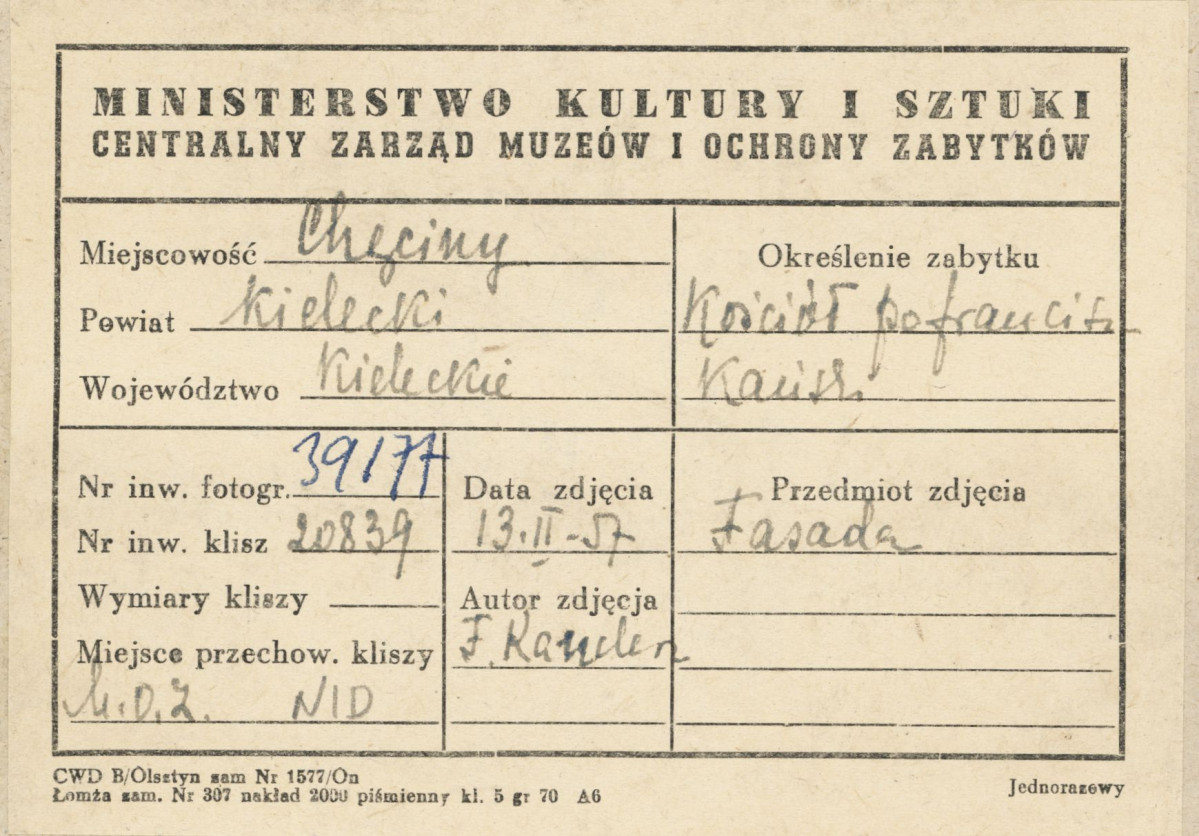 MINISTERSTWO KULTURY I SZTUKI
CENTRALNY ZARZĄD MUZEÓW I OCHRONY ZABYTKÓW
Miejscowość Chęciny
Powiat kielecki
Województwo kieleckie
Określenie zabytku
Kościół pofrancisz
kański
Nr inw. fotogr. 39177
Nr inw. klisz 20839
Wymiary kliszy
Miejsce przechow. kliszy
M.O.Z. NID
Data zdjęcia
13.II-57
Autor zdjęcja
F.
Przedmiot zdjęcia
Fasada
CWD B/Olsztyn zam Nr 1577/On
Łomża zam. Nr 307 nakład 2000 piśmienny kl. 5 gr 70 A6
Jednorazowy